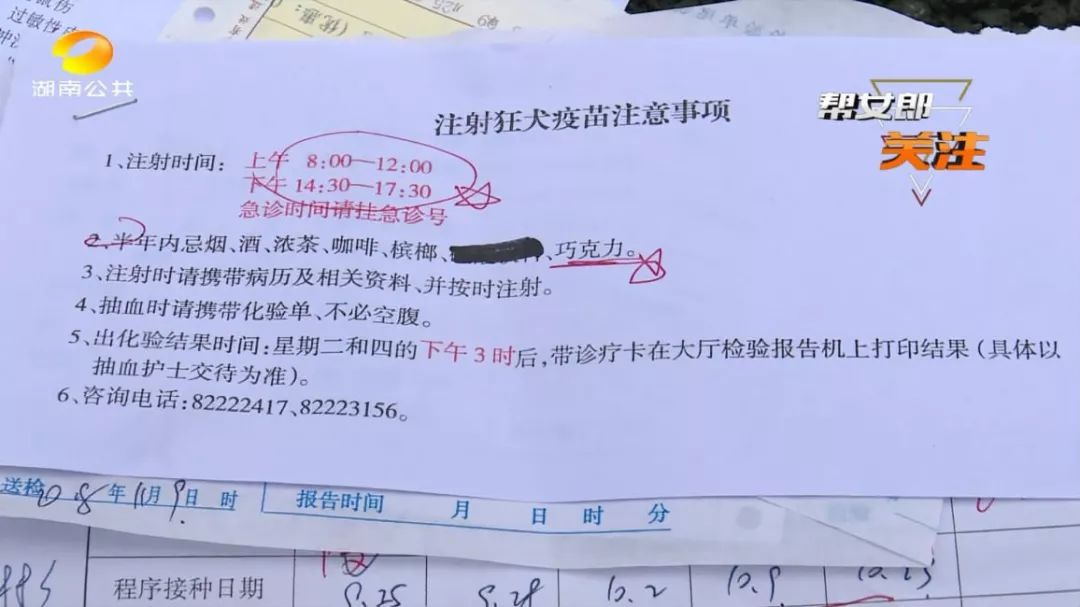 湖南公共
帮女郎
关注
注射狂犬疫苗注意事项
1、注射时间: 上午 8:00—12:00
下午 14:30—17:30
急诊时间请挂急诊号
2、半年内忌烟、酒、浓茶、咖啡、槟榔、、巧克力。
3、注射时请携带病历及相关资料、并按时注射。
4、抽血时请携带化验单、不必空腹。
5、出化验结果时间:星期二和四的下午3时后,带诊疗卡在大厅检验报告机上打印结果(具体以
抽血护士交待为准)。
6、咨询电话:82222417、82223156。
送检 年11月9日 时 报告时间 月 日 时 分
程序接种日期 9.25 9.28 10.2 10.9